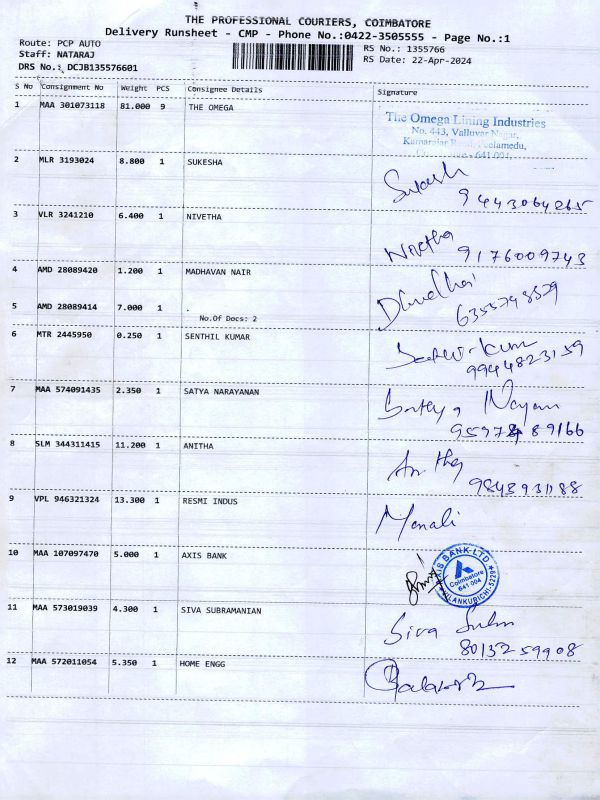 THE PROFESSIONAL COURIERS, COIMBATORE
Delivery Runsheet - CMP - Phone No.:0422-3505555 - Page No.:1
Route: PCP AUTO
Staff: NATARAJ
DRS No.: DCJB135576601
RS No.: 1355766
RS Date: 22-Apr-2024
S No Consignment No Weight PCS Consignee Details Signature
1 MAA 301073118 81.000 9 THE OMEGA
The Omega Lining Industries
No. 443, Valluvar Nagar,
2 MLR 3193024 8.800 1 SUKESHA
Sukesh
9443064265
3 VLR 3241210 6.400 1 NIVETHA
Nivetha
9176009743
4 AMD 28089420 1.200 1 MADHAVAN NAIR
5 AMD 28089414 7.000 1 .
No.Of Docs: 2
6 MTR 2445950 0.250 1 SENTHIL KUMAR
9944823159
7 MAA 574091435 2.350 1 SATYA NARAYANAN
8 SLM 344311415 11.200 1 ANITHA
Anitha
9843931188
9 VPL 946321324 13.300 1 RESMI INDUS
Monali
10 MAA 107097470 5.000 1 AXIS BANK
AXIS BANK LTD.
Coimbatore
641 004
11 MAA 573019039 4.300 1 SIVA SUBRAMANIAN
Siva Subm
8013259908
12 MAA 572011054 5.350 1 HOME ENGG